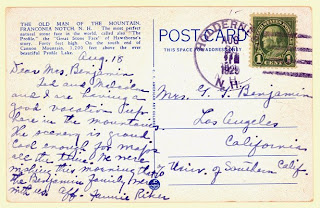 THE OLD MAN OF THE MOUNTAIN.
FRANCONIA NOTCH, N. H. The most perfect
natural stone face in the world, called also "The
Profile," the "Great Stone Face" of Hawthorne's
story. Forty feet high. On the south end of
Cannon Mountain, 1,200 feet above the ever
beautiful Profile Lake.
POSTCARD
THIS SPACE FOR ADDRESS ONLY
AUG
1925
N.H.
1 CENT 1
Aug. 18
Dear Mrs. Benjamin
Ted and Malcolm
and I are having a
good vacation trip
here in the mountains.
The scenery is grand
Cool enough for
all the time. We were
wishing this morning that
the Benjamin family were
with us. Aff- Fannie
Mrs. G. H. Benjamin
Los Angeles
California
% Univ. of Southern Calif.